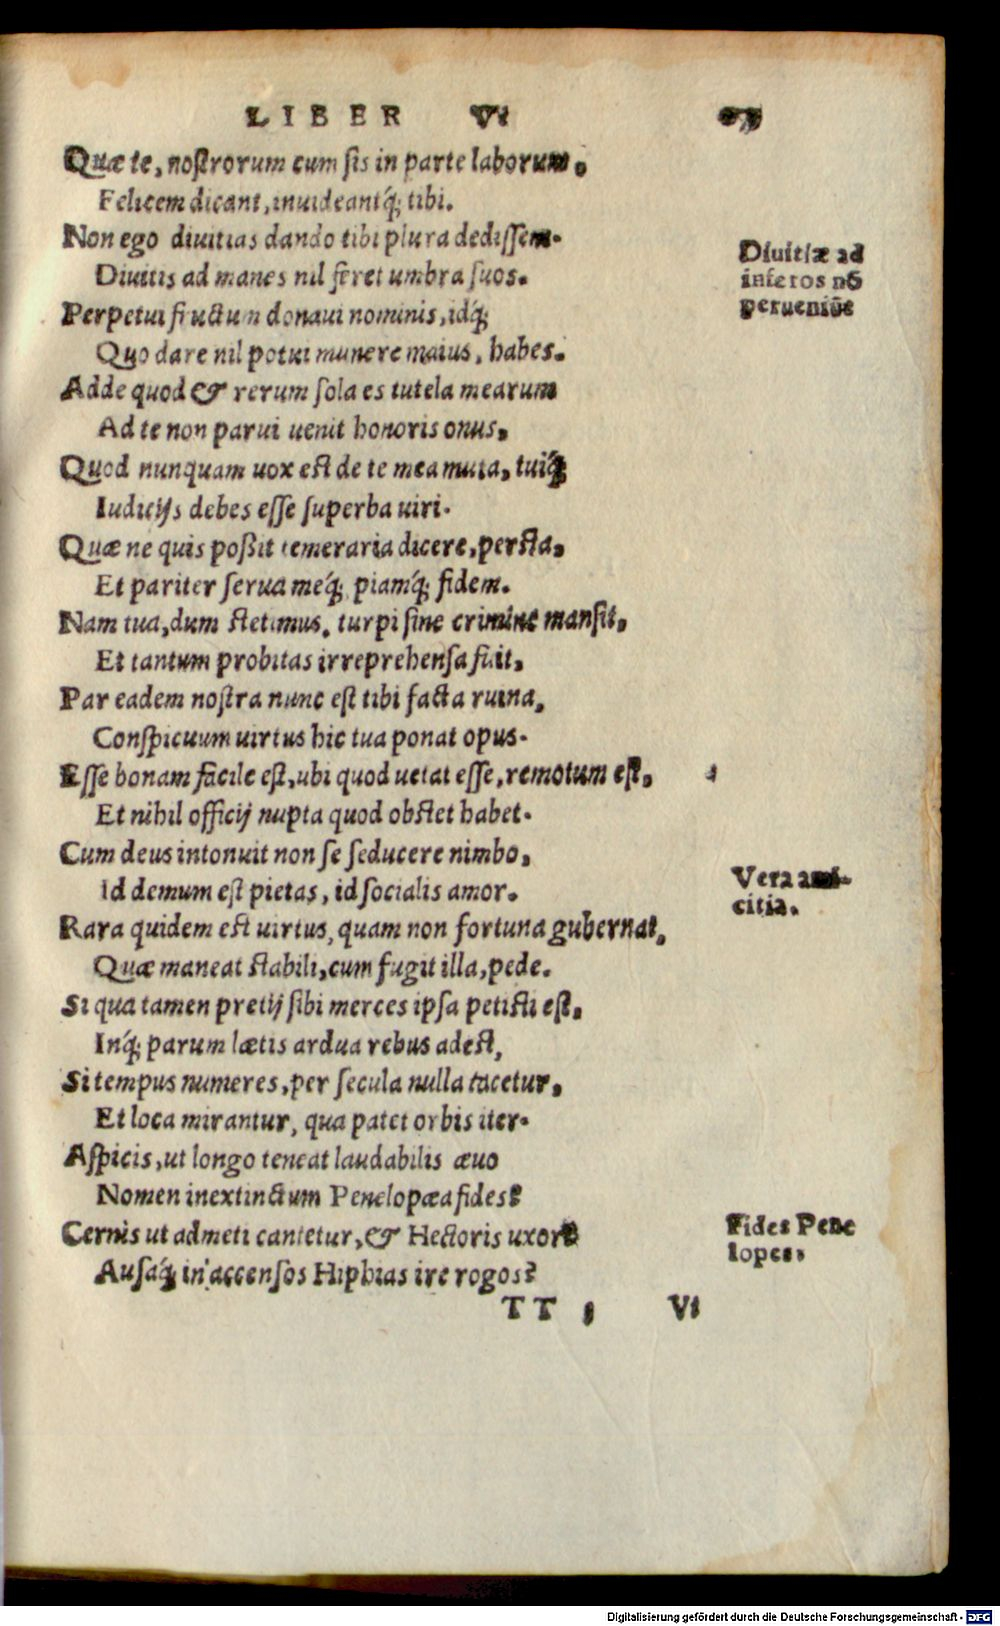 LIBER VI
Quæ te, noſtrorum cum ſis in parte laborum,
Felicem dicant, inuideantq́; tibi.
Non ego diuitias dando tibi plura dediſſem.
Diuitis ad manes nil feret umbra ſuos.
Diuitiæ ad
inferos nõ
perueniũt
Perpetui fructum donaui nominis, idq́;
Quo dare nil potui munere maius, habes.
Adde quod & rerum ſola es tutela mearum
Ad te non parui uenit honoris onus,
Quod nunquam uox est de te mea muta, tuiq́;
Iudicijs debes eſſe ſuperba uiri.
Quæ ne quis poßit temeraria dicere, persta,
Et pariter ſerua meq́; piamq́; fidem.
Nam tua, dum stetimus, turpi ſine crimine manſit,
Et tantum probitas irreprehenſa fuit,
Par eadem noſtra nunc eſt tibi facta ruina,
Conſpicuum uirtus hic tua ponat opus.
Eſſe bonam facile eſt, ubi quod uetat eſſe, remotum eſt,
Et nihil officij nupta quod obstet habet.
Cum deus intonuit non ſe ſeducere nimbo,
Id demum eſt pietas, id ſocialis amor.
Vera ami-
citia.
Rara quidem est uirtus, quam non fortuna gubernat,
Quæ maneat stabili, cum fugit illa, pede.
Si qua tamen pretij ſibi merces ipſa petiti est,
Inq́; parum lætis ardua rebus adest,
Si tempus numeres, per ſecula nulla tacetur,
Et loca mirantur, qua patet orbis iter.
Aſpicis, ut longo teneat laudabilis æuo
Nomen inextinctum Penelopæa fides?
Cernis ut admeti cantetur, & Hectoris uxor
Auſaq́; in accenſos Hiphias ire rogos?
Fides Pene
lopes.
TT Vt
Digitalisierung gefördert durch die Deutsche Forschungsgemeinschaft - DFG